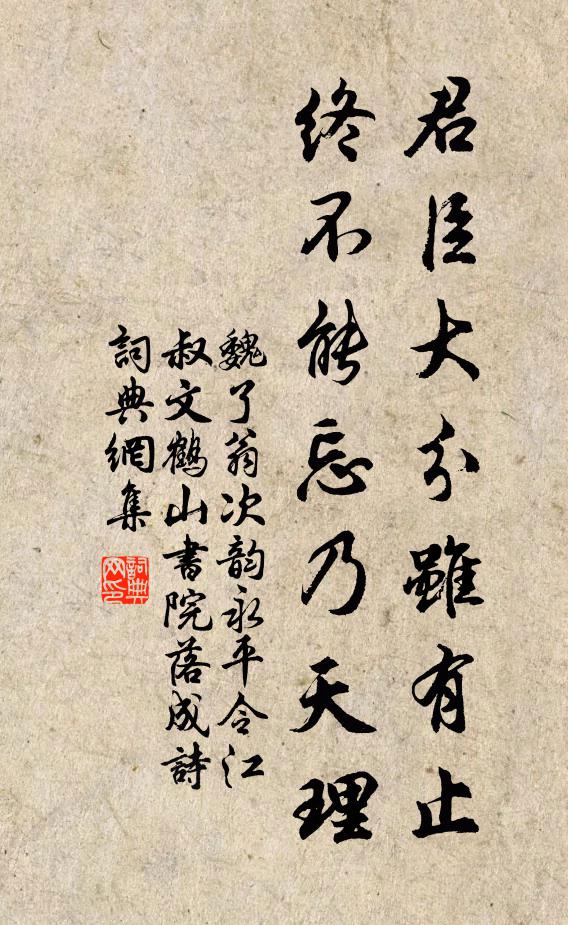 君臣大分雖有止
終不能忘乃天理
魏了翁次韵永平令江
叔文鶴山書院落成詩
詞典網集
詞典
网印